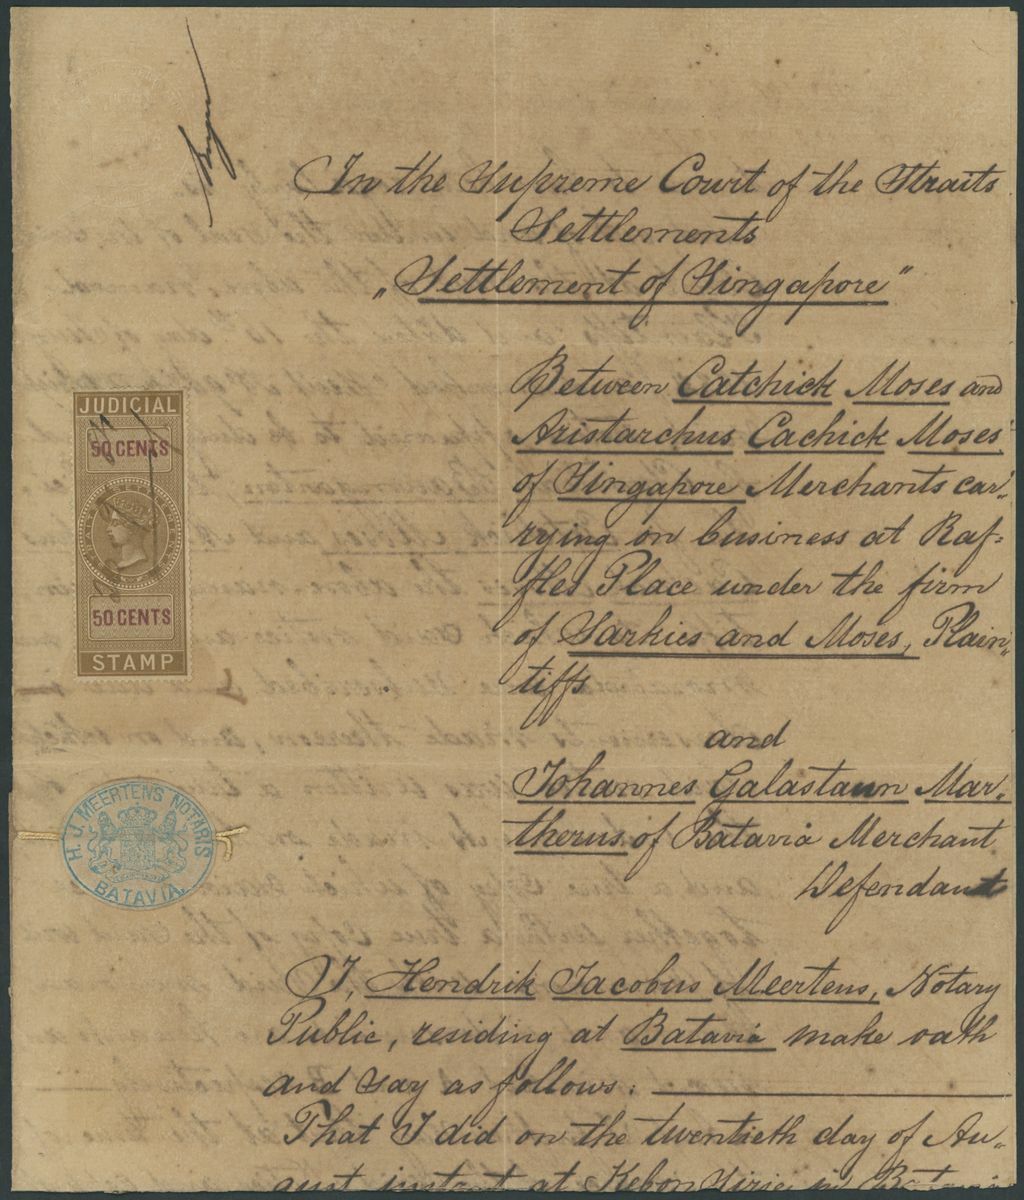 In the Supreme Court of the Straits
Settlements
„Settlement of Singapore"
JUDICIAL
50 CENTS
50 CENTS
STAMP
H. J. MEERTENS NOTARIS
BATAVIA.
Between Catchick Moses and
Aristarchus Cachick Moses
of Singapore Merchants car„
rying on business at Raf-
fles Place under the firm
of Sarkies and Moses, Plain„
tiffs
and
Johannes Galastaun Mar-
therus of Batavia Merchant
Defendant
I, Hendrik Jacobus Meertens, Notary
Public, residing at Batavia make oath
and say as follows:
That I did on the twentieth day of Au„
gust instant at Kebon Sirie in Batavia